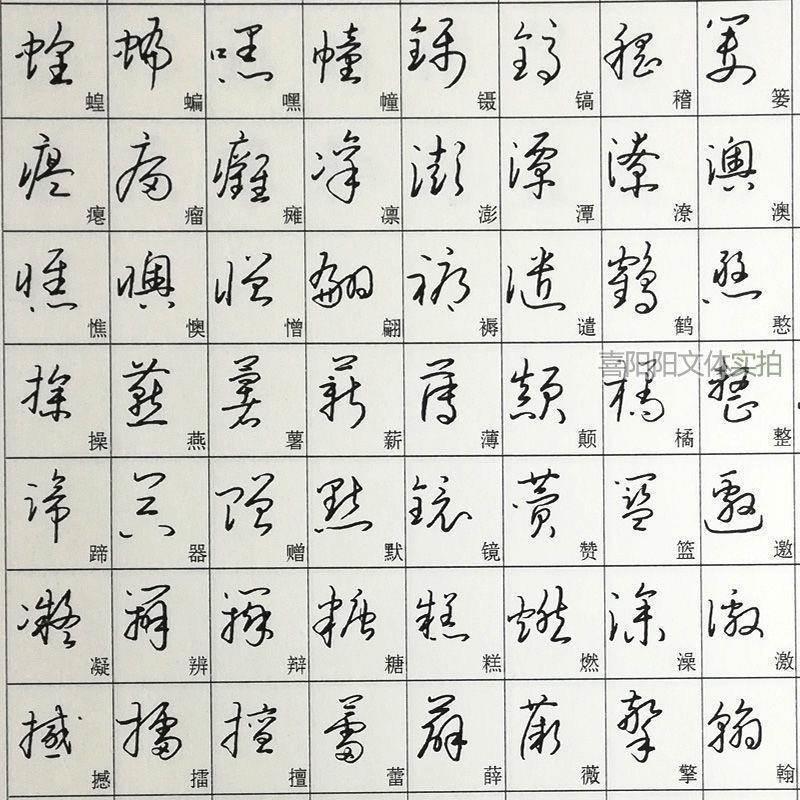 蝗 蝙 嘿 幢 镊 镐 稽 篓
瘪 瘤 瘫 凛 澎 潭 潦 澳
憔 懊 憎 翩 褥 谴 鹤 憨
喜阳阳文体实拍
操 燕 薯 薪 薄 颠 橘 整
蹄 器 赠 默 镜 赞 篮 邀
凝 辨 辩 糖 糕 燃 澡 激
撼 擂 擅 蕾 薛 薇 擎 翰